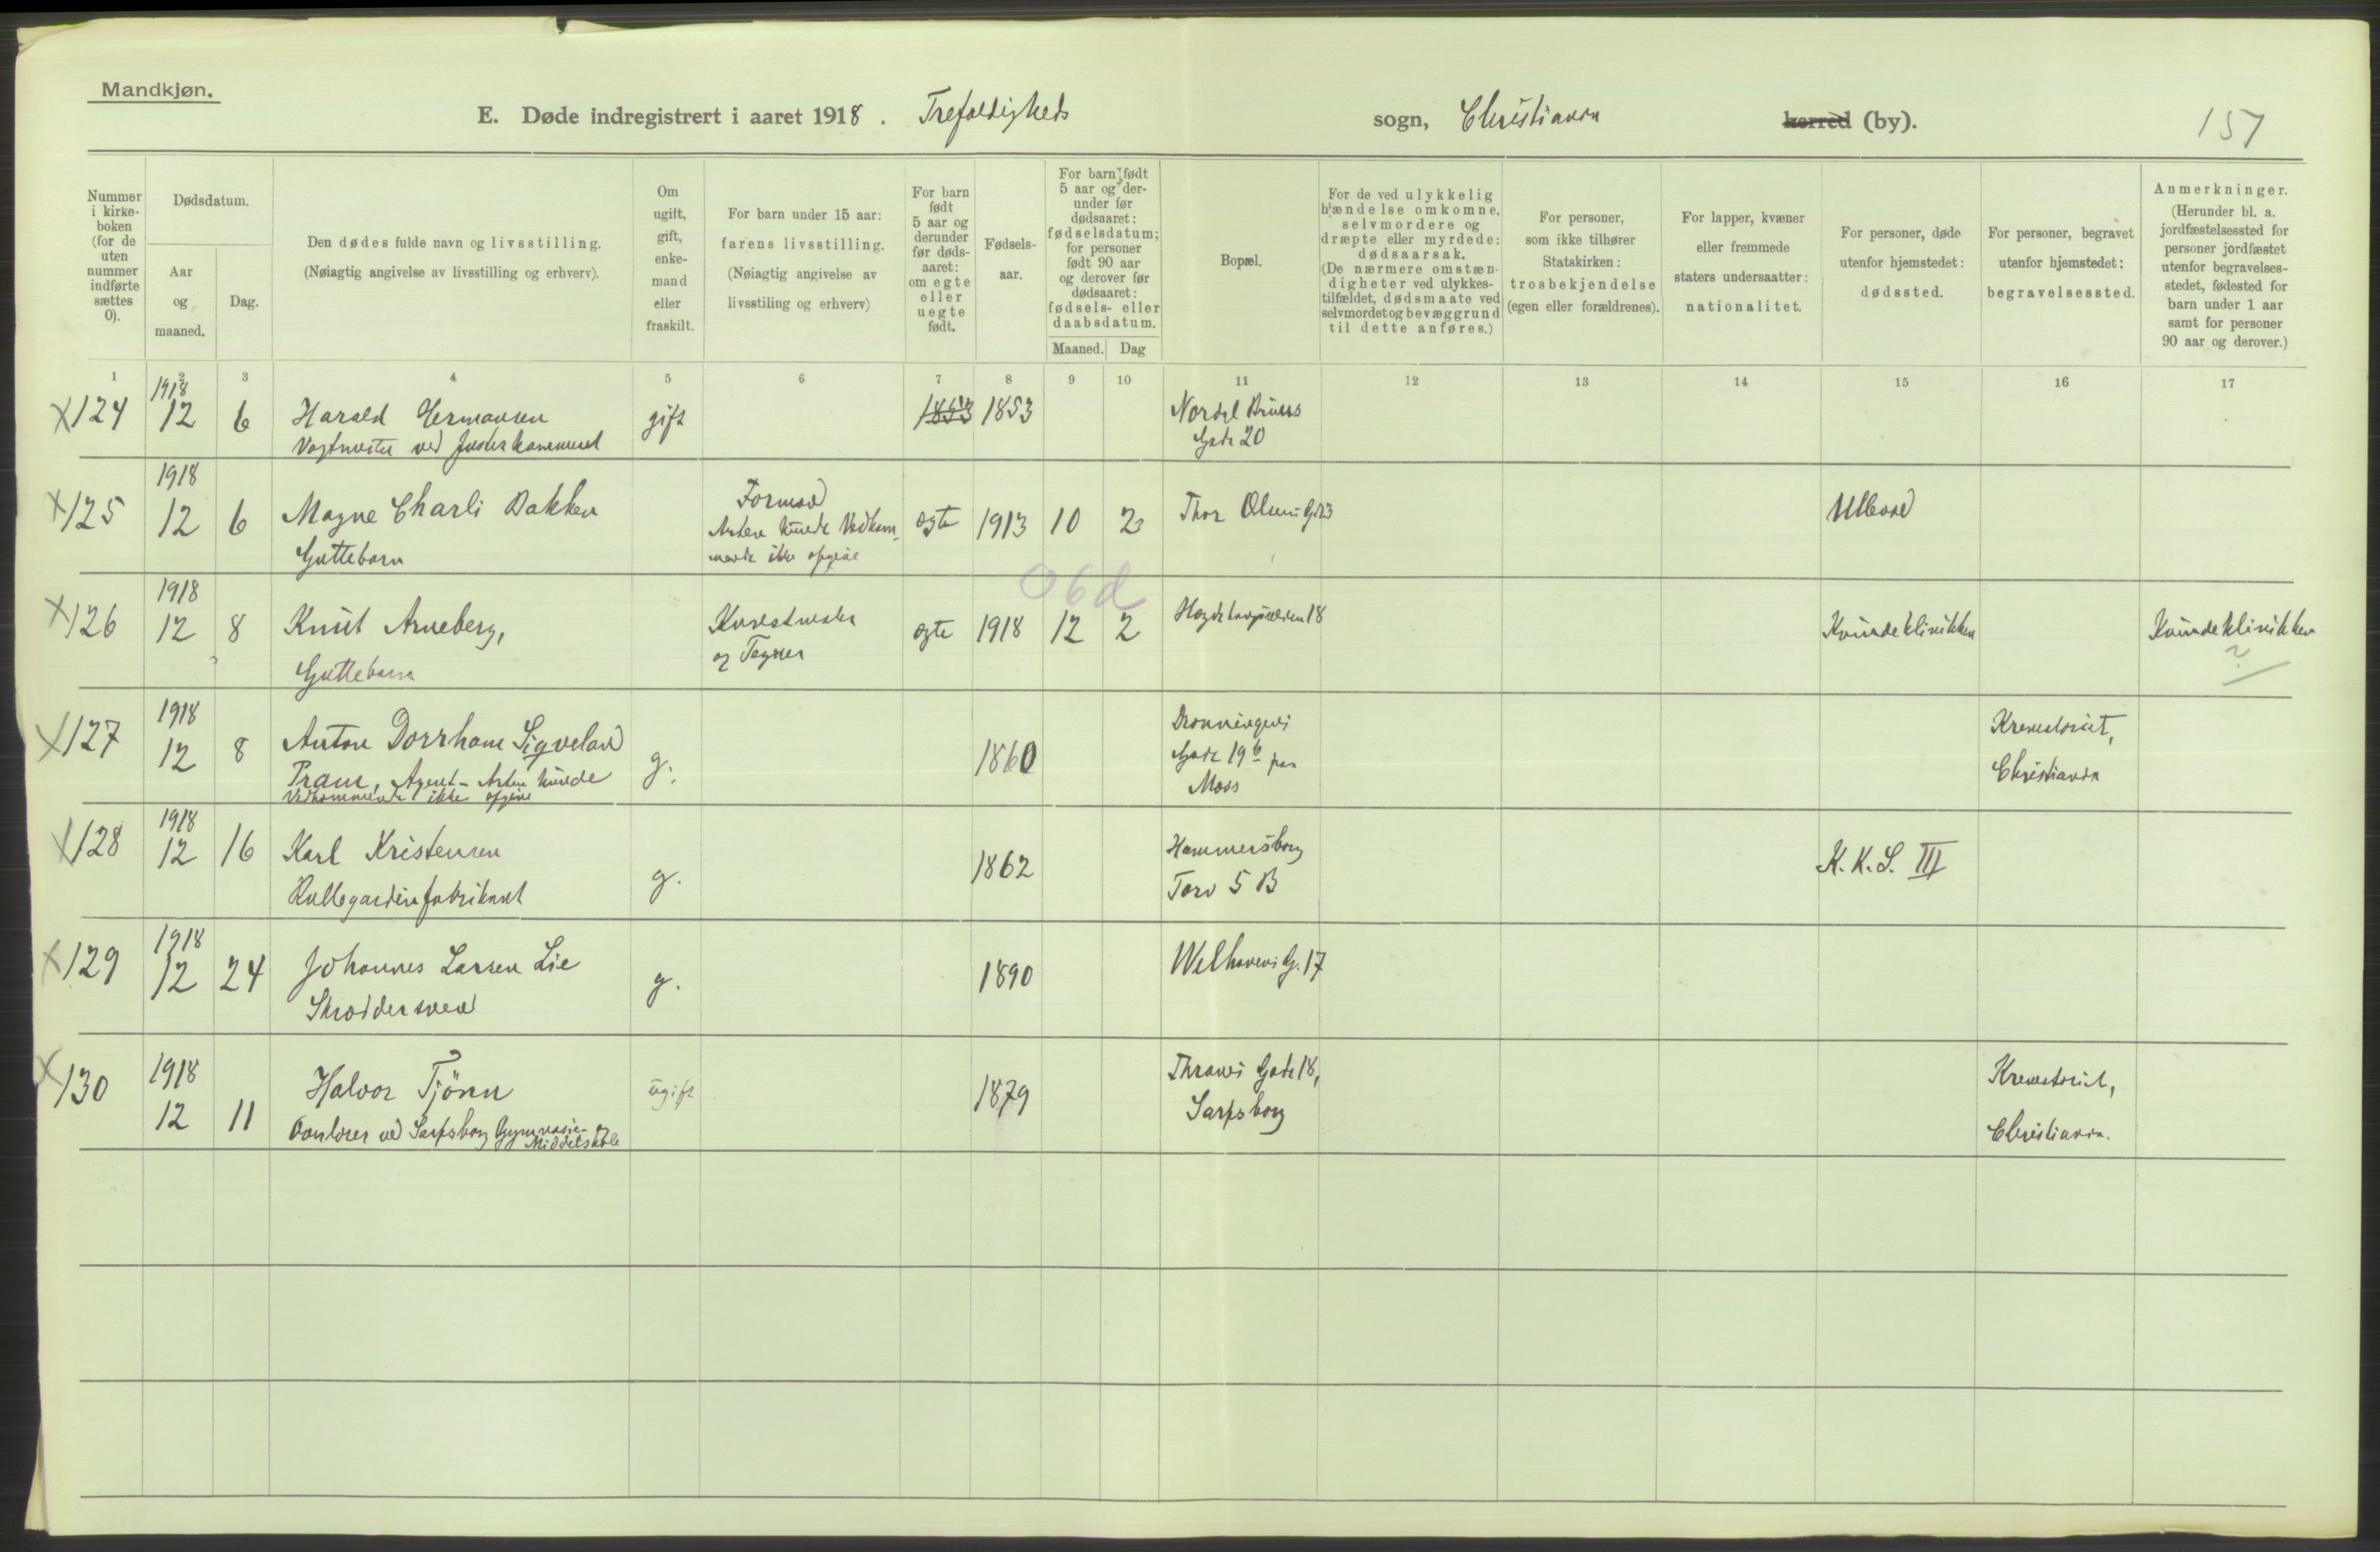 Mandkjøn.
E. Døde indregistrert i aaret 1918. Trefoldigheds sogn, Christiania herred (by).
157
Nummer i kirkeboken (for de uten nummer indførte sættes 0).
Dødsdatum.
Aar og maaned.
Dag.
Den dødes fulde navn og livsstilling.
(Nøiagtig angivelse av livsstilling og erhverv).
Om ugift, gift, enkemand eller fraskilt.
For barn under 15 aar: farens livsstilling.
(Nøiagtig angivelse av livsstiling og erhverv)
For barn født 5 aar og derunder før dødsaaret: om egte eller uegte født.
Fødselsaar.
For barn født 5 aar og derunder før dødsaaret: fødselsdatum; for personer født 90 aar og derover før dødsaaret: fødsels- eller daabsdatum.
Maaned.
Dag
Bopæl.
For de ved ulykkelig hændelse omkomne, selvmordere og dræpte eller myrdede: dødsaarsak.
(De nærmere omstændigheter ved ulykkestilfældet, dødsmaate ved selvmordet og bevæggrund til dette anføres.)
For personer, som ikke tilhører Statskirken: trosbekjendelse (egen eller forældrenes).
For lapper, kvæner eller fremmede staters undersaatter: nationalitet.
For personer, døde utenfor hjemstedet: dødssted.
For personer, begravet utenfor hjemstedet: begravelsessted.
Anmerkninger.
(Herunder bl. a. jordfæstelsessted for personer jordfæstet utenfor begravelsesstedet, fødested for barn under 1 aar samt for personer 90 aar og derover.)
1 2 3 4 5 6 7 8 9 10 11 12 13 14 15 16 17
X124 1918 12 6 Harald Hermansen gift 1853 1853
Vagtmester ved
Gade 20
X125 1918 12 6 Magne Charli Bakken
Guttebarn
Formand
Arten kunde Vedkommende ikke opgive
egte 1913 10 2 Thor Olsens G. 13 Ullevod
06d
X126 1918 12 8 Knut Arneberg,
Guttebarn
Kunstmaler
og Tegner
egte 1918 12 2 18 Kvindeklinikken Kvindeklinikken
?
X127 1918 12 8 Anton Dorrham Sigveland
Pram, Agent - Arten kunde
Vedkommende ikke opgive
g. 1860
Dronningens
Gade 19 b paa
Moss
Krematoriet,
Christiania
X128 1918 12 16 Karl Kristensen
Rullegardinfabrikant
g. 1862
Hammersborg
Torv 5 B
K. K. S. III
X129 1918 12 24 Johannes Larsen Lie
Skræddersvend
g. 1890 Welhavens G. 17
X130 1918 12 11 Halvor Tjönn
ved Sarpsborg Gymnasie- og
Middelskole
ugift 1879
Thranes Gade 18,
Sarpsborg
Krematoriet,
Christiania.